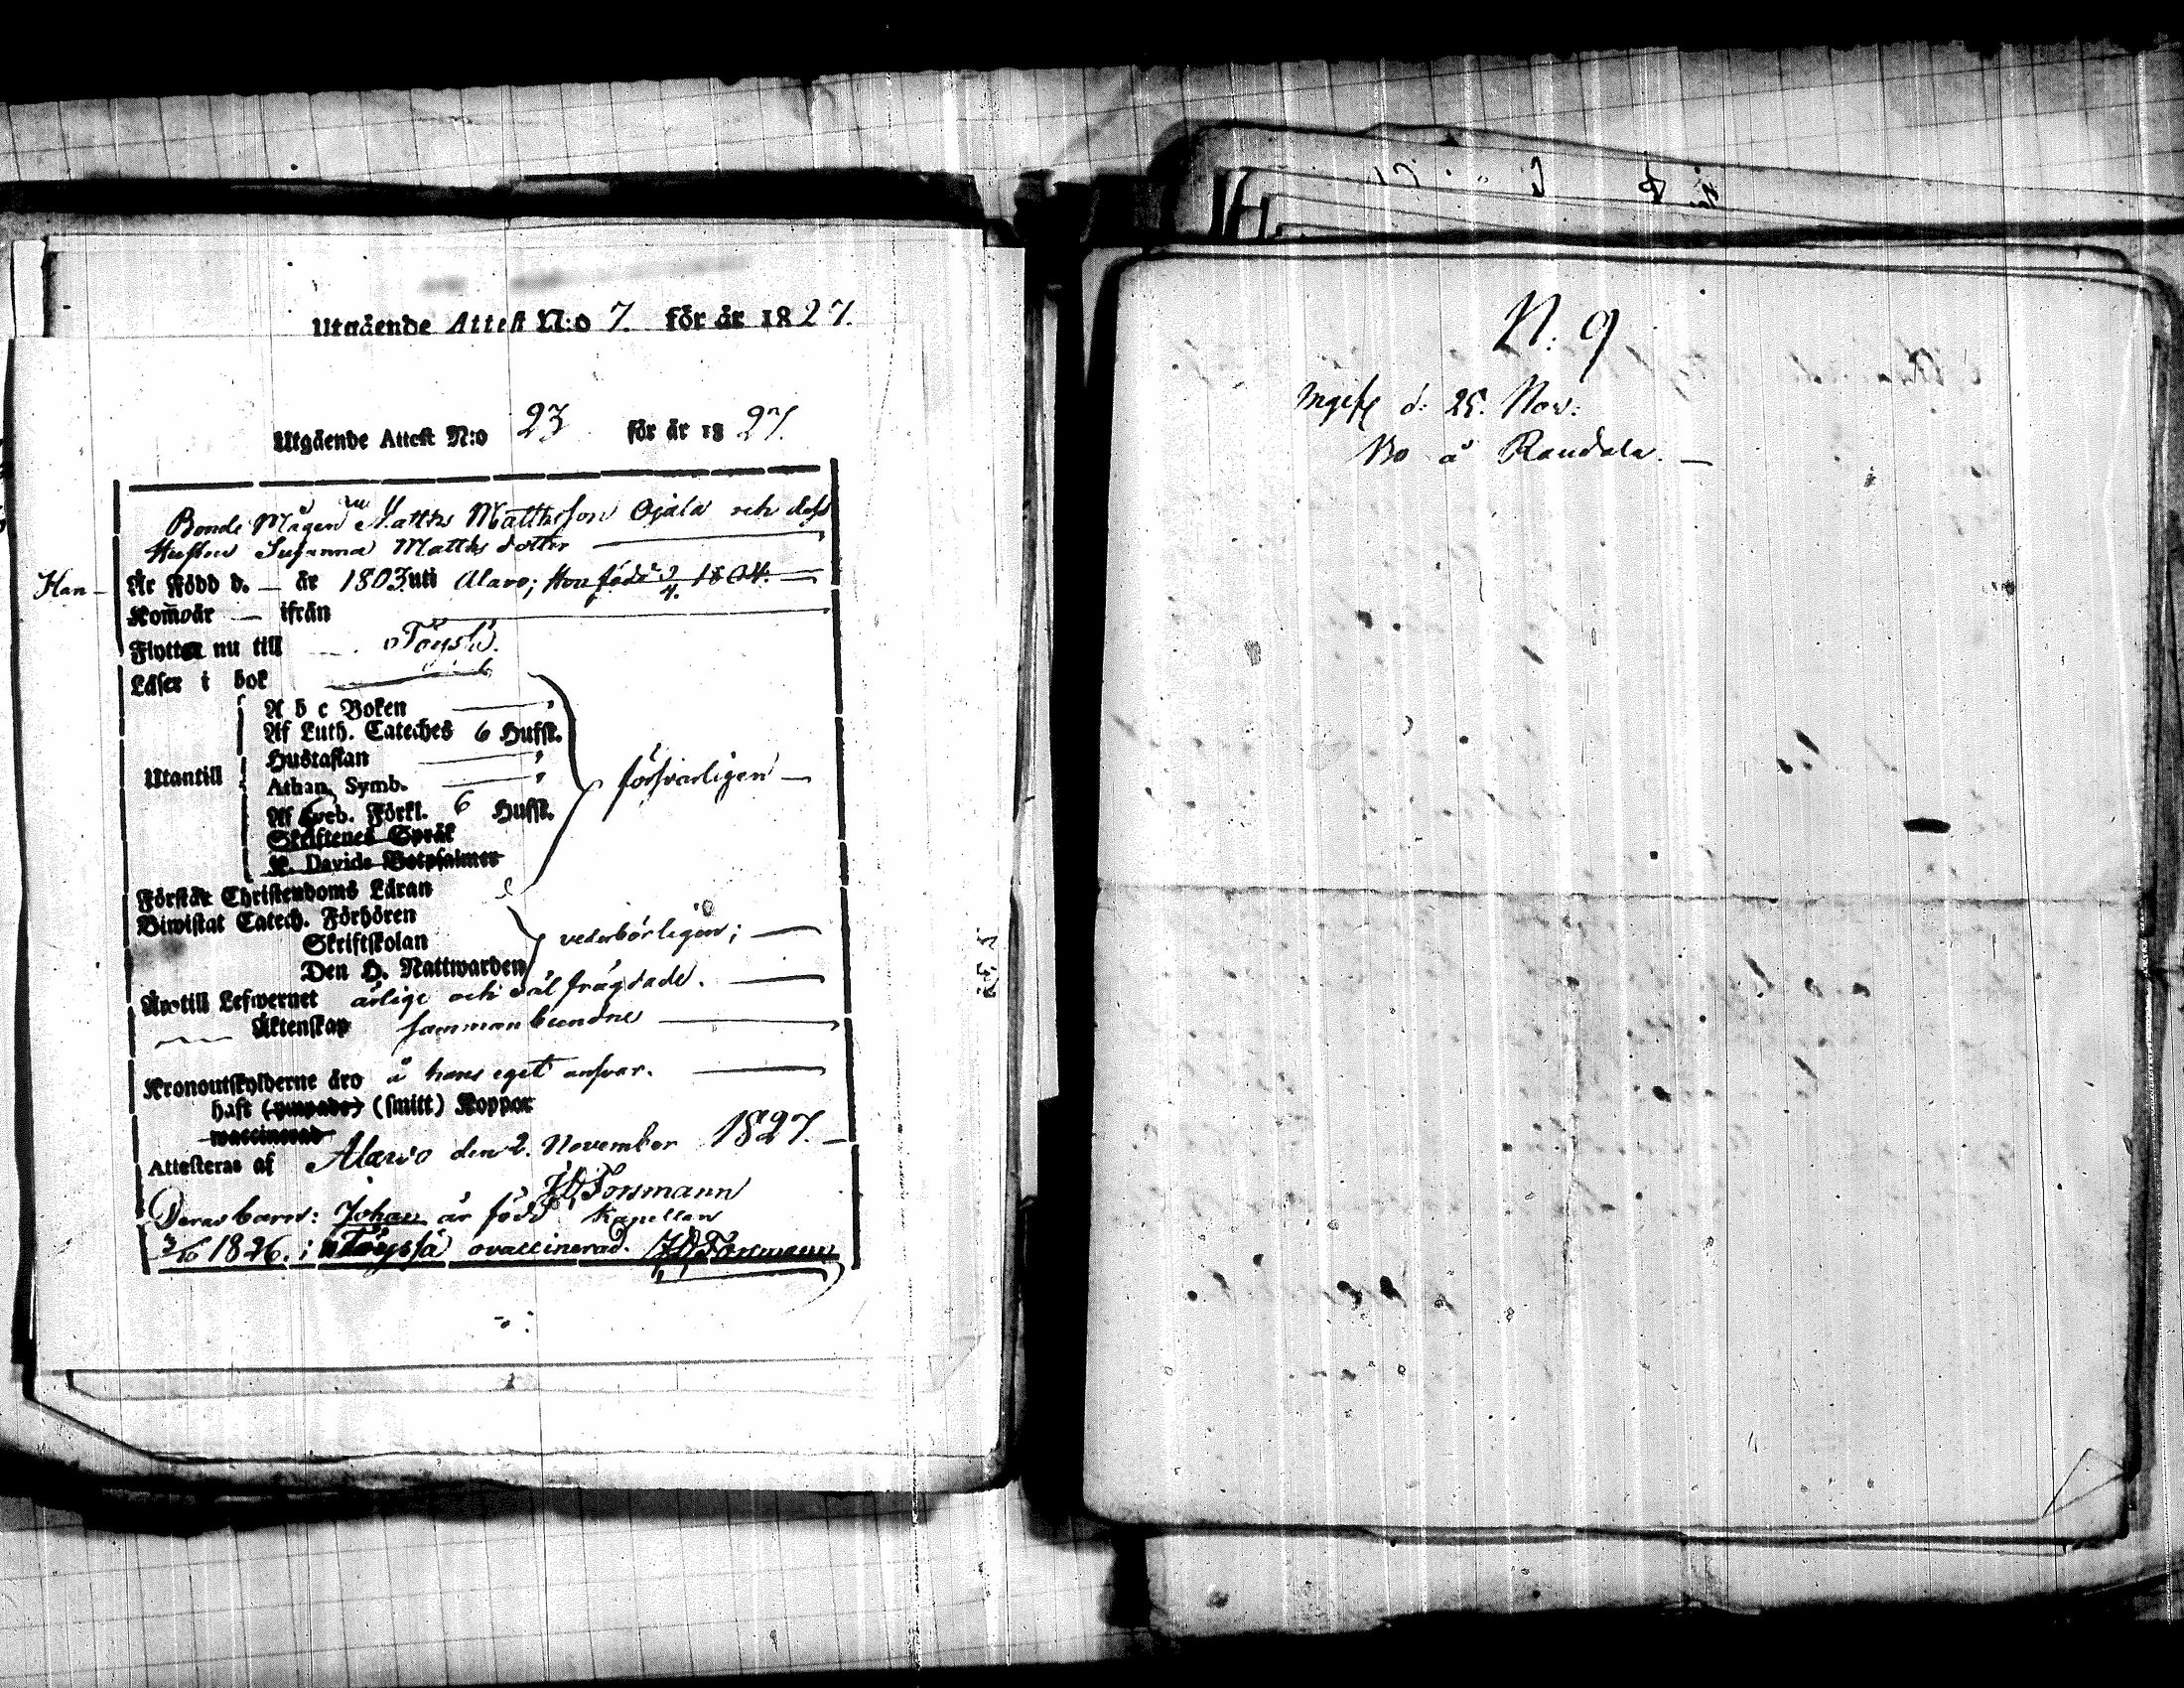 Utgående Attest N:o 7. för år 1827.
Utgående Attest N:o 23 för år 1827.
Bonde Mågen Matths Matthsson Ojala och dess
Hustru Susanna Matths dotter
Han Är Född d. — år 1803 uti Alavo; Hon född 9/4. 1804.
Kom̅ år — ifrån
Flyttar nu till Töysä.
Läser i bok
A b c Boken
Af Luth. Cateches 6 Hufst.
Hustaflan
Utantill
Athan. Symb.
försvarligen —
Af Sveb. Förkl. 6 Hufst.
Skriftenes Språk
K. Davids Botpsalmer
Förstår Christendoms Läran
Biwistat Catech. Förhören
Skriftskolan
vederbörligen; —
Den H. Nattwarden
Äro till Lefwernet ärlige och väl frägdade. —
Äktenskap sammanbundne —
Kronoutskylderne äro å hans eget ansvar. —
haft (ympade) (smitt) Koppor
waccinerad
Attesteras af Alavo den 2. November 1827. —
Forsmann
Deras barn: Johan är född Kapellan
3/10 1826. i Töysä ovaccinerad. Forsmann
N: 9
d: 25. Nov:
Bo å Raudala. —